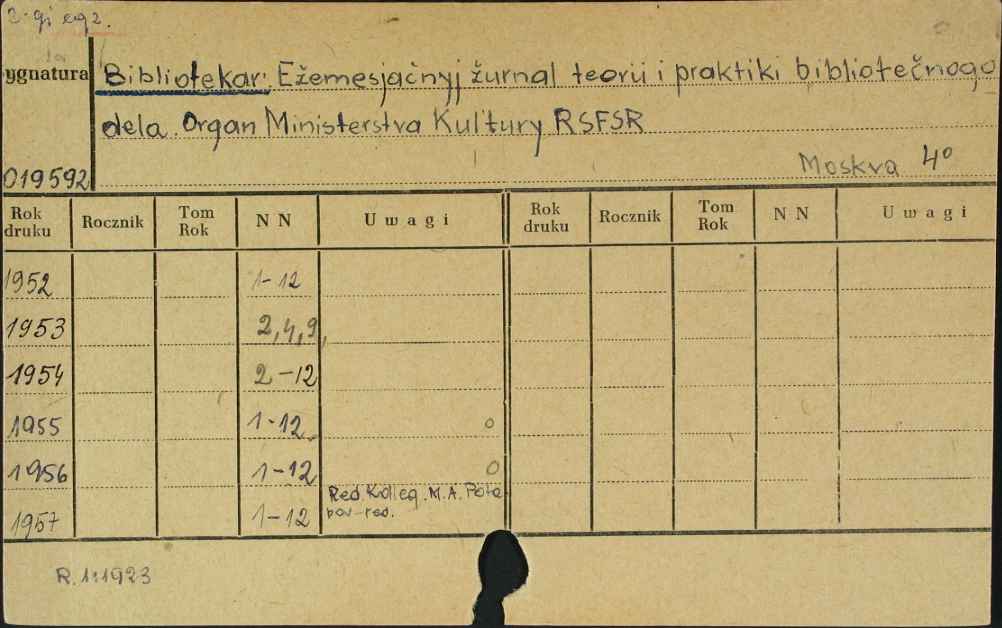 2-gi egz.
ygnatura
Bibliotekar'. Ežemesjačnyj žurnal teorii i praktiki bibliotečnogo
dela. Organ Ministerstva Kul'tury RSFSR
019592
Moskva 4°
Rok druku Rocznik Tom Rok N N Uwagi Rok druku Rocznik Tom Rok N N Uwagi
1952 1-12
1953 2,4,9,
1954 2-12
1955 1-12 o
1956 1-12 o
Red. Kolleg. M.A. Pota
pov-red.
1957 1-12